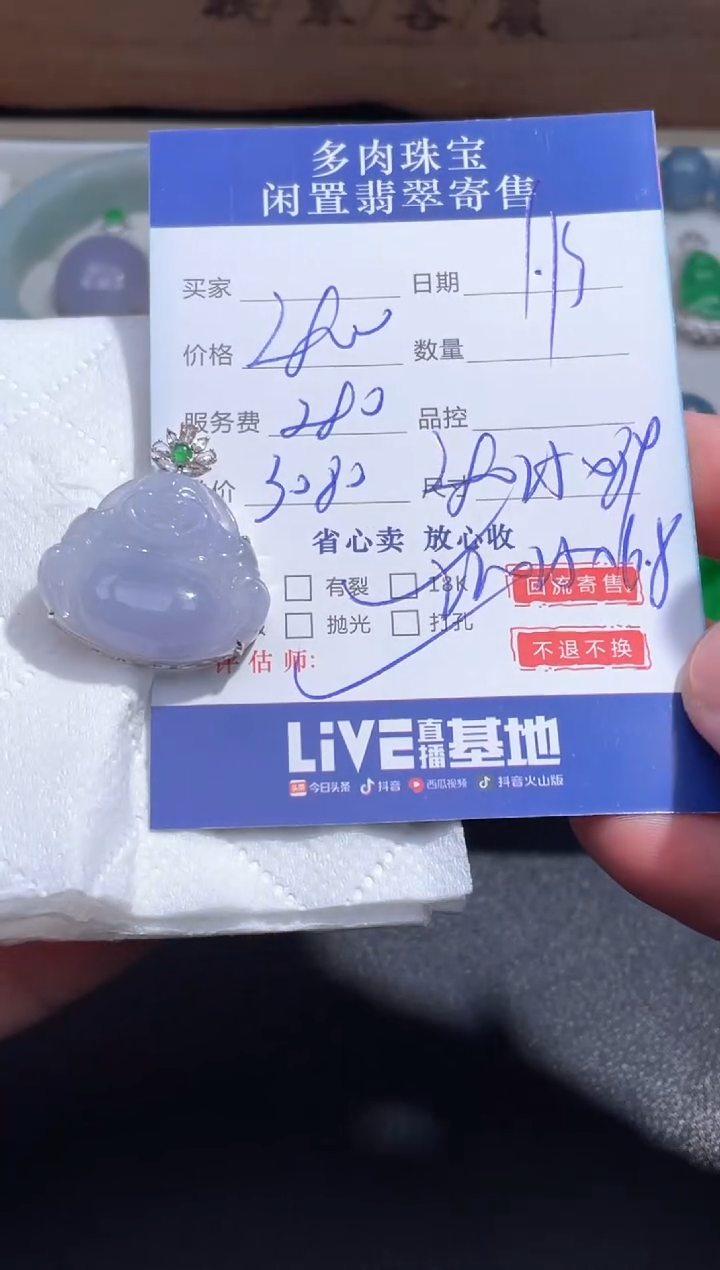 多肉珠宝
闲置翡翠寄售
买家 日期 1.15
价格 2800 数量
服务费 280 品控
价 3080 尺寸
省心卖 放心收
有裂 18K 回流寄售
抛光 打孔 不退不换
评估师:
LiVE直播基地
头条 今日头条 抖音 西瓜视频 抖音火山版